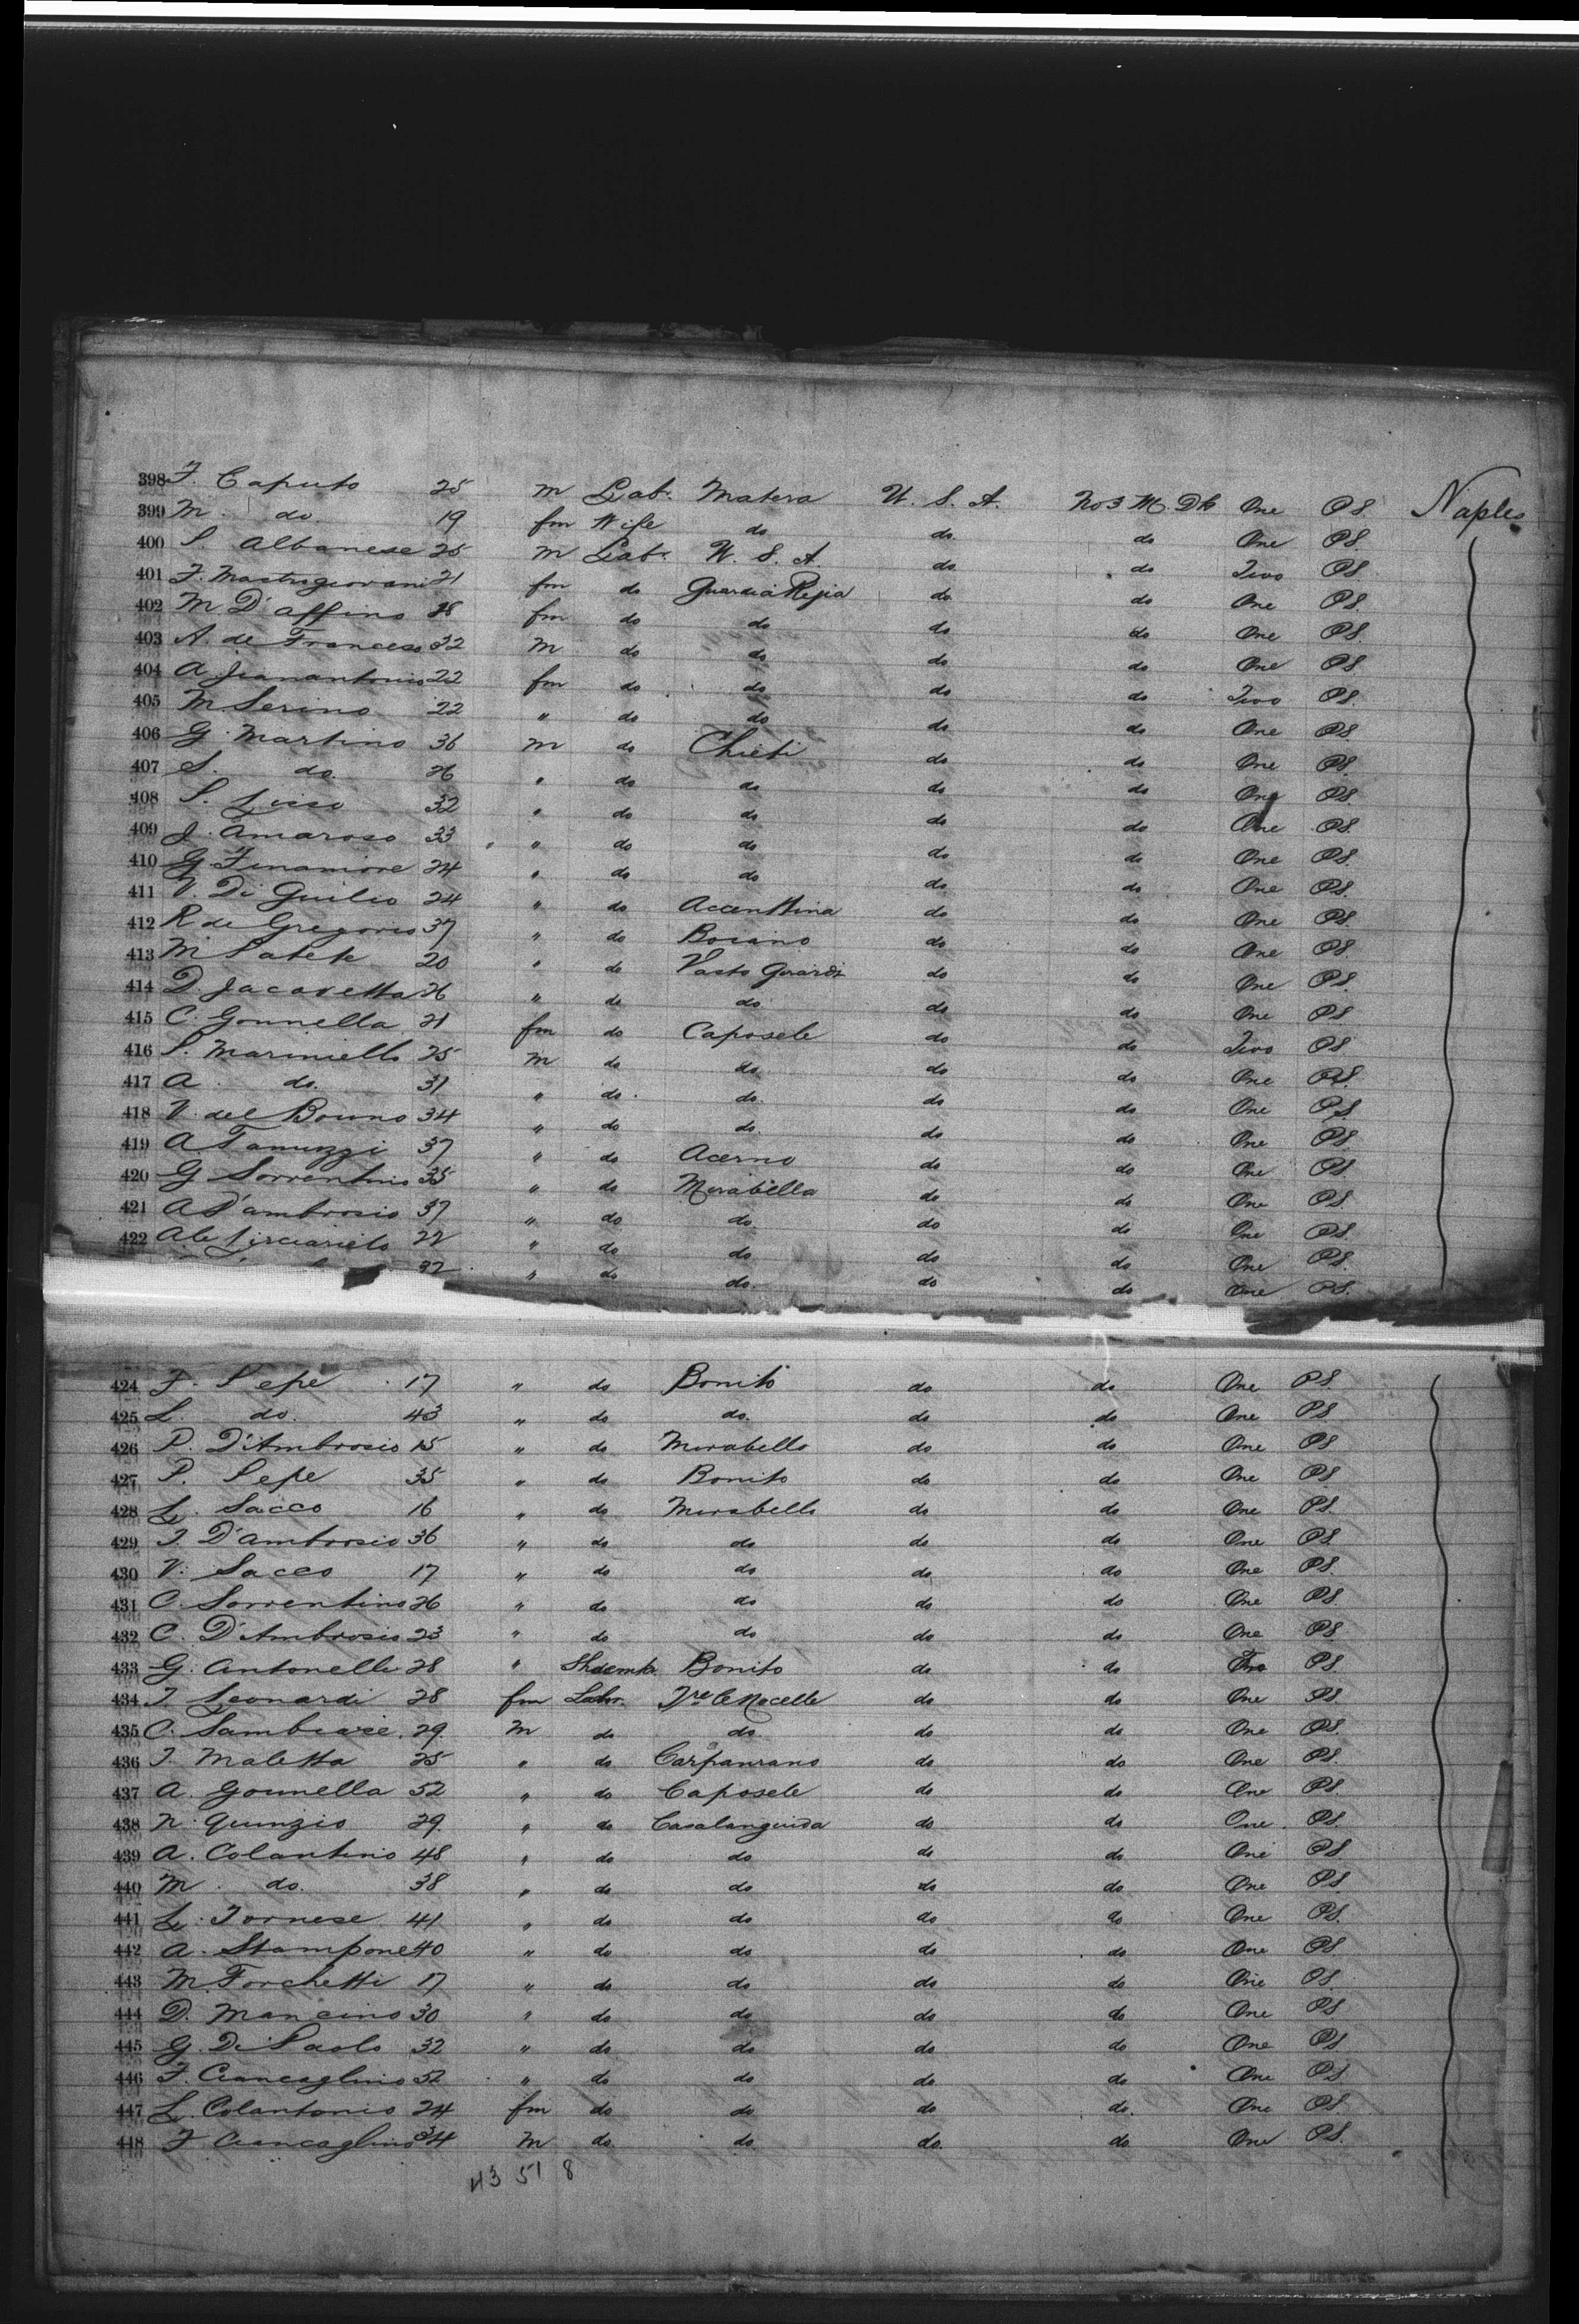 398 F. Caputo 25 m Lab. Matera U. S. A. No 3 M. Dk One PS. Naples
399 M. do. 19 fm Wife do do. do One PS.
400 S. Albanese 25 m Lab. U. S. A. do. do Two PS.
401 F. Mastrogiovani 21 fm do Guardia Regia do. do One PS.
402 M. D'affino 28 fm do do do do One PS.
403 A. de Francesco 32 m do do do do One PS.
404 A. Jianantonio 22 fm do do do do Two PS.
405 M Serino 22 " do do do do One PS
406 G. Martino 36 m do Chieti do do One PS.
407 S. do. 26 " do do do do One PS.
408 S. Lisso 32 " do do do do One PS.
409 J. Amaroso 33 " do do do do One PS.
410 G. Finamore 24 " do do do. do One PS.
411 V. Di Guilio 24 " do do do One PS.
412 R de Gregorio 37 " do Boiano do do One PS.
413 M 20 " do Vasto Girardi do do One PS.
414 D. Jacovetta 26 " do do do do One PS
415 C. Gonnella 21 fm do Caposele do do Two PS.
416 S. Mariniello 25 m do do. do do One PS.
417 A do. 31 " do. do. do do One PS
418 V. del Bouno 34 " do do. do do One PS.
419 A. Tamuzzi 37 " do Acerno do do One PS.
420 G Sorrentino 35 " do Mirabella do do One PS.
421 A D'ambrosio 37 " do do. do do One PS.
422 22 " do do do do One PS.
32 " do do. do do One PS.
424 F. Sepe 17 " do Bonito do do One PS.
425 L. do. 43 " do do. do do One PS
426 P. D'Ambrosio 15 " do Mirabello do do One PS
427 P. Sepe 35 " do Bonito do do One PS
428 L. Sacco 16 " do Mirabello do do One PS.
429 T. D'ambrosio 36 " do do do do One PS.
430 V. Sacco 17 " do do do do One PS.
431 C. Sorrentino 26 " do do do do One PS.
432 C. D'Ambrosio 23 " do do do do One PS
433 G. Antonelli 28 " Shoemk. Bonito do do One PS.
434 T Leonardi 28 fm Labr. do do One PS.
435 C. Sambiase 29. m do do. do do One PS.
436 T. Maletta 25 " do Carpanzano do do One PS.
437 A. Gounella 52 " do Caposele do do One PS.
438 N. Quinzio 29 " do Casalanguida do do One PS.
439 A. Colantino 48 " do do do do One PS
440 M. do. 38 " do do do do One PS
441 L. Tornese 41 " do do do do One PS.
442 A. Stampone 40 " do do do do One PS
443 M. Forchetti 17 " do do do do One PS.
444 D. Mancino 30 " do do do do One PS
445 G. Di Paolo 32 " do do do do One PS
446 F. Ciancaglino 52 " do do do do One PS
447 L. Colantonio 24 fm do do do do. One PS
448 F Ciancaglino 34 m do. do. do. do One PS.
43 51 8